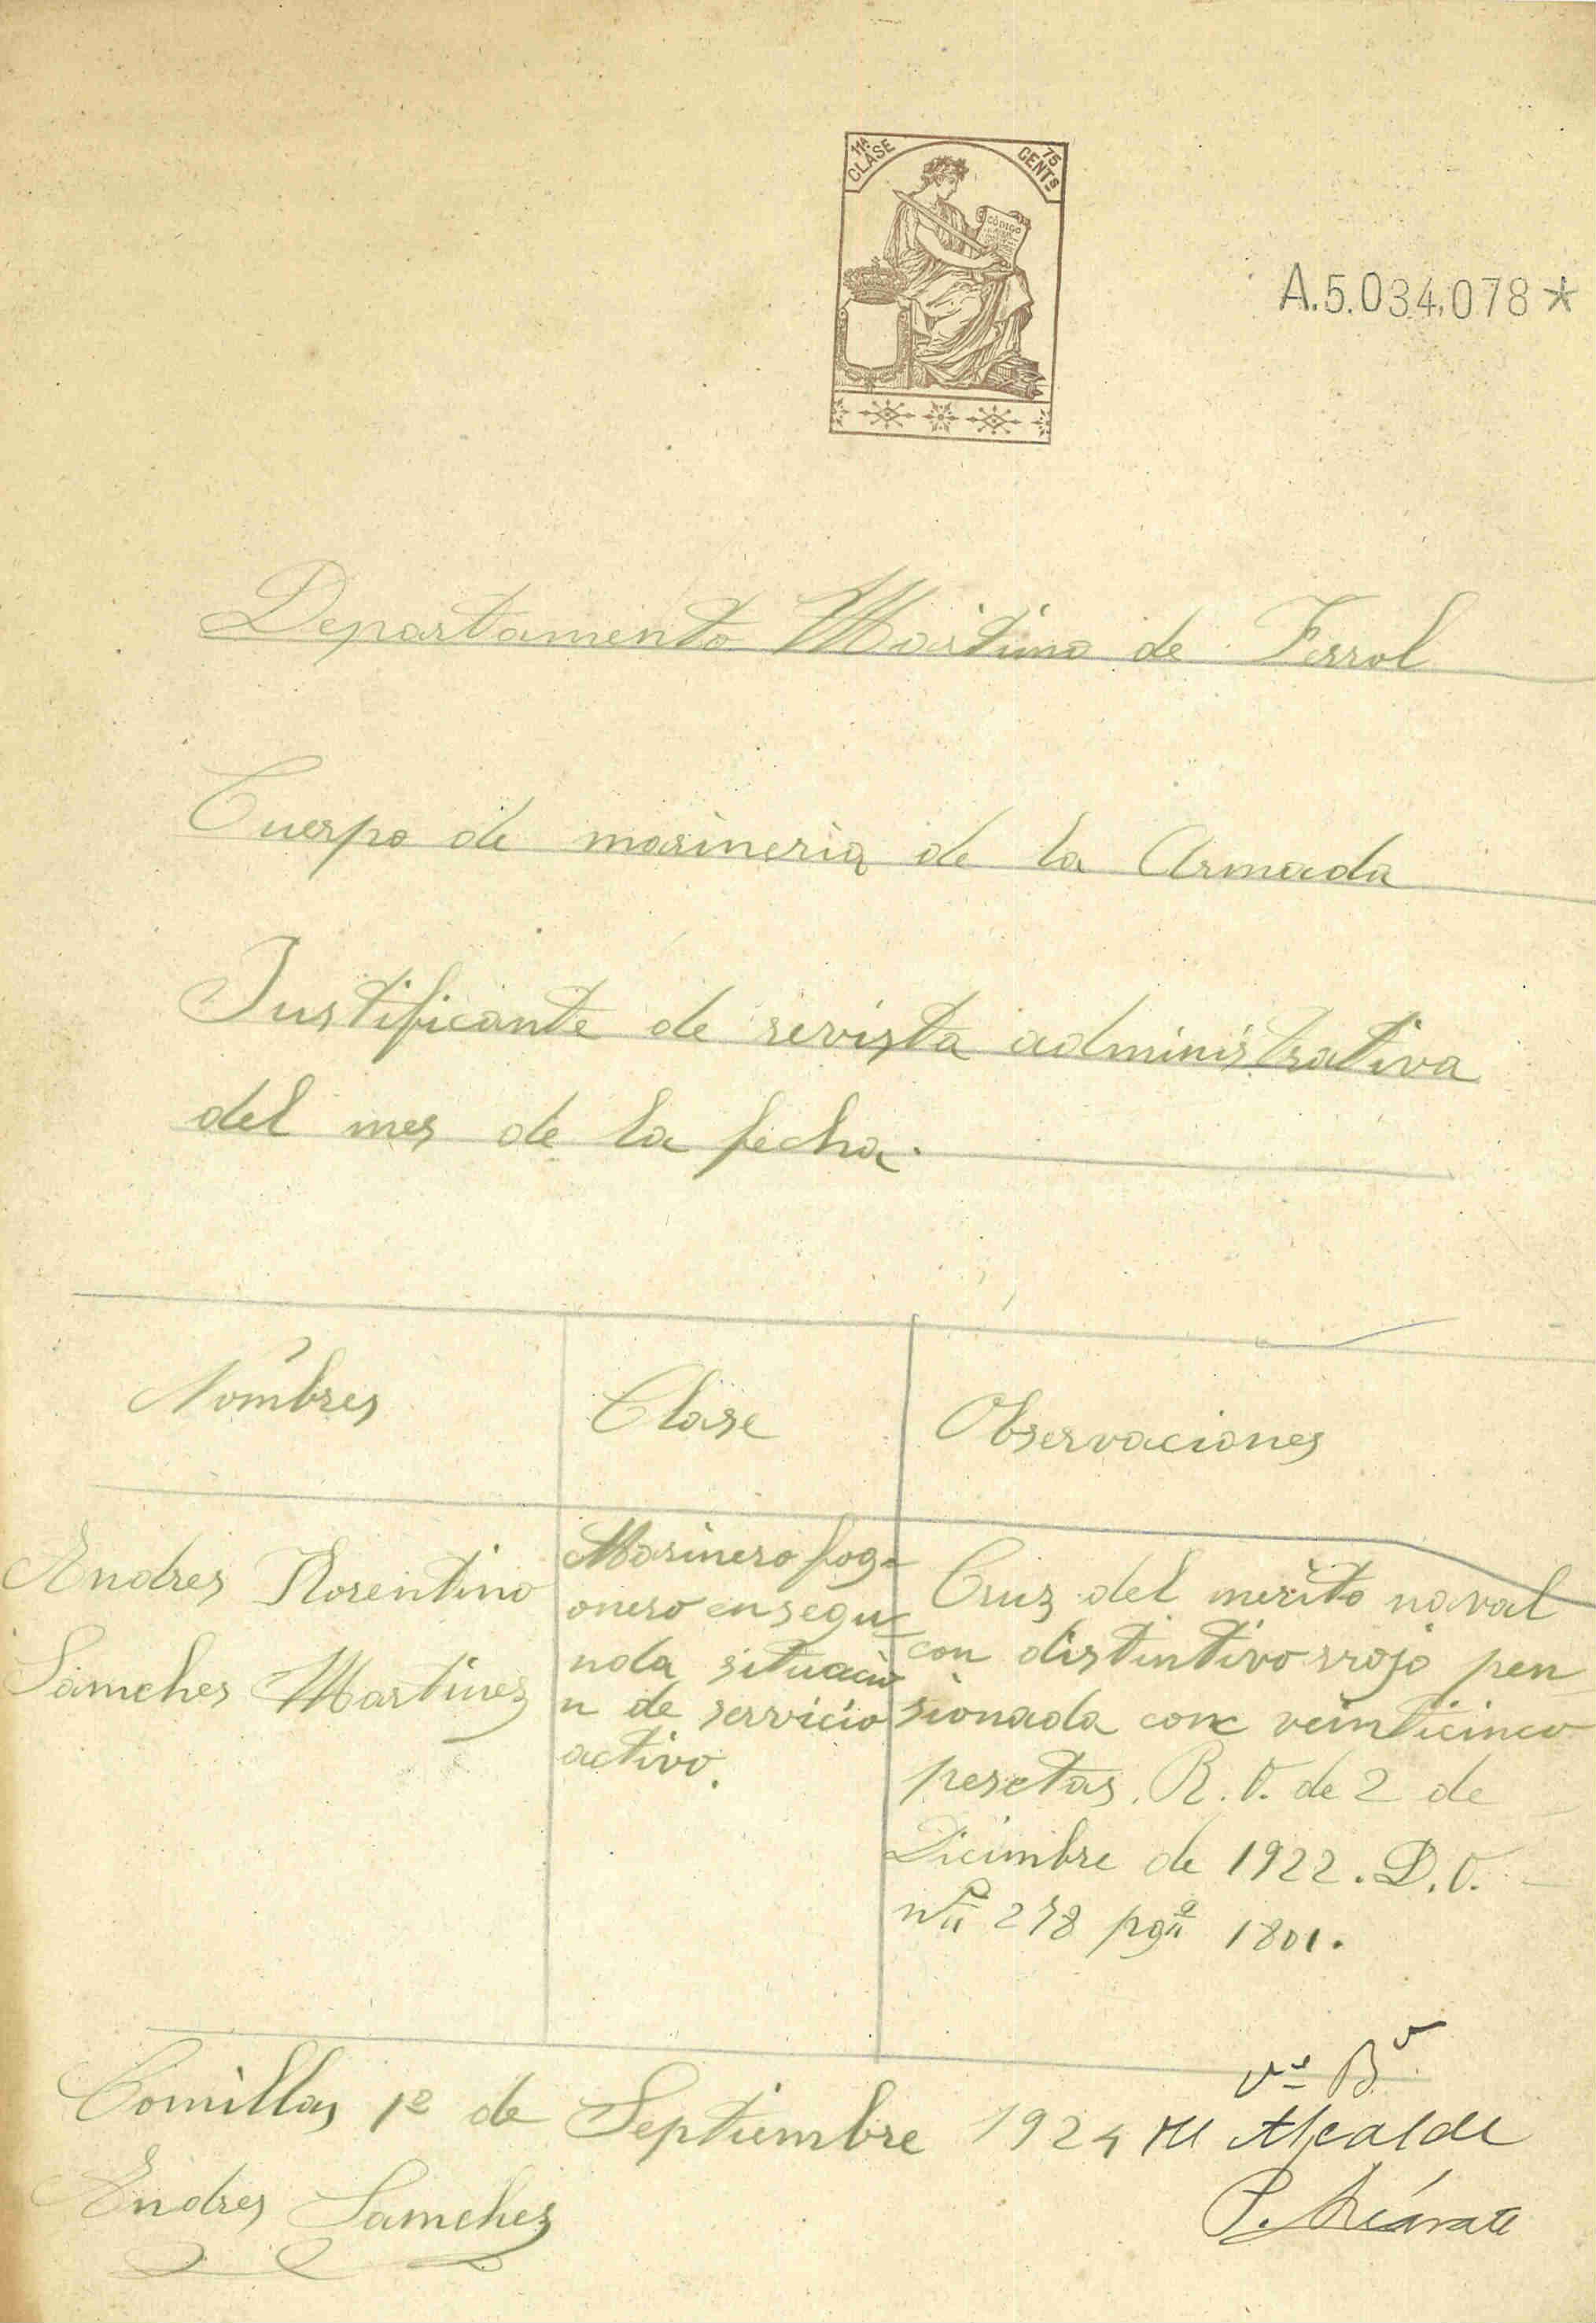 11ª CLASE
75 CENTS
CÓDIGO
A.5.034.078*
Departamento Maritimo de Ferrol
Cuerpo de marineria de la Armada
Justificante de revista administrativa
del mes de la fecha.
Nombres
Clase
Observaciones
Andres Florentino
Samches Martinez
Marinero fog-
onero en segu-
nda situacio
n de servicio
activo.
Cruz del merito naval
con distintivo rrojo pen
sionada con veinticinco
pesetas. R. O. de 2 de
Diciembre de 1922. D. O.
nº 278 pgª 1801.
Comillas 1º de Septiembre 1924
Andres Samchez
Vº Bº
El Alcalde
P.